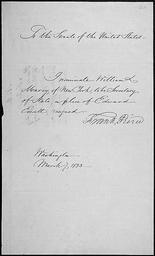 To the Senate of the United States.
I nominate William L.
Marcy of New York, to be Secretary
of State, in place of Edward
Everett resigned.
Franklin Pierce
Washington
March 7, 1853.